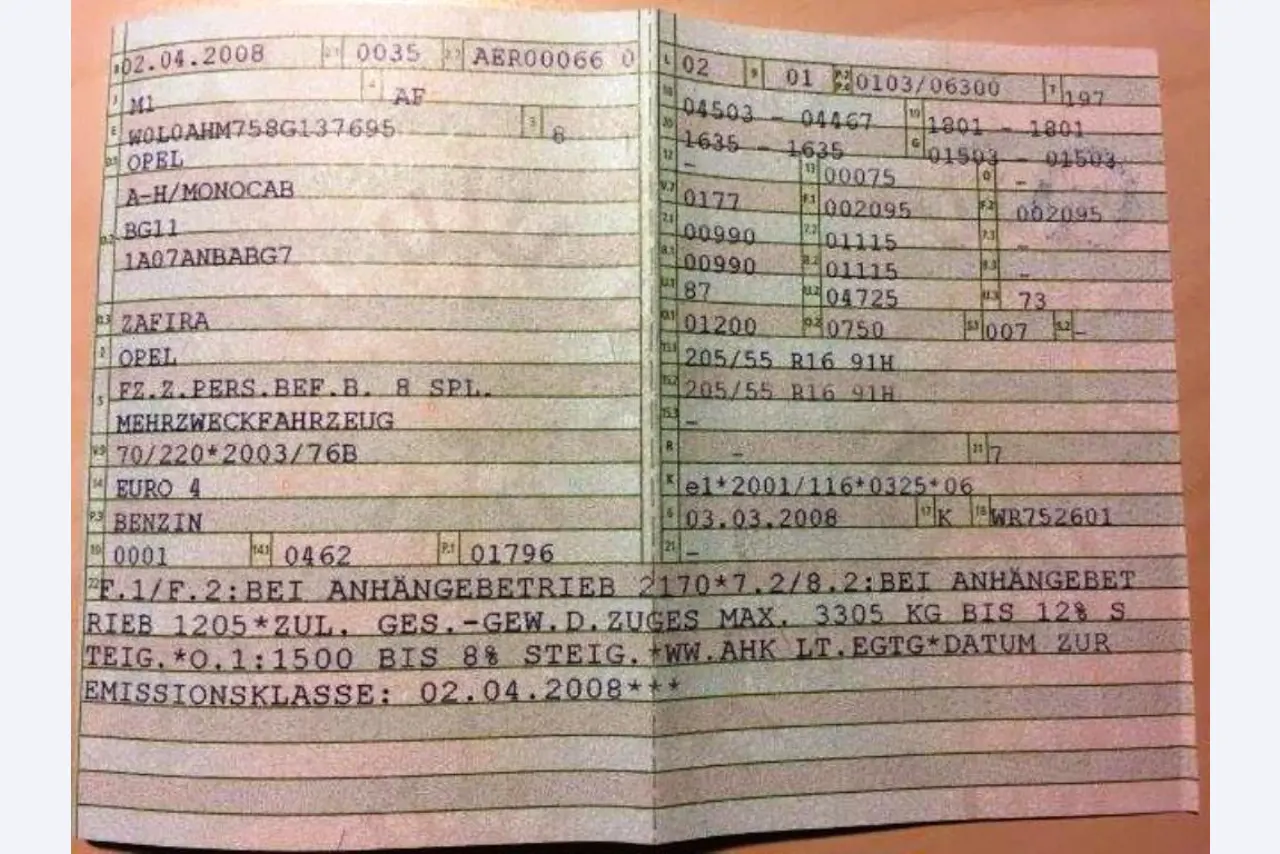 B 02.04.2008 2.1 0035 2.2 AER00066 0
J M1 4 AF
E W0L0AHM758G137695 3 6
D.1 OPEL
A-H/MONOCAB
D.2 BG11
1A07ANBABG7
D.3 ZAFIRA
2 OPEL
5 FZ.Z.PERS.BEF.B. 8 SPL.
MEHRZWECKFAHRZEUG
V.9 70/220*2003/76B
14 EURO 4
P.3 BENZIN
10 0001 14.1 0462 P.1 01796
L 02 9 01 P.2 P.4 0103/06300 T 197
18 04503 - 04467 19 1801 - 1801
20 1635 - 1635 G 01503 - 01503
12 - 13 00075 Q -
V.7 0177 F.1 002095 F.2 002095
7.1 00990 7.2 01115 7.3 -
8.1 00990 8.2 01115 8.3 -
U.1 87 U.2 04725 U.3 73
O.1 01200 O.2 0750 S.1 007 S.2 -
15.1 205/55 R16 91H
15.2 205/55 R16 91H
15.3 -
R - 11 7
K e1*2001/116*0325*06
6 03.03.2008 17 K 16 WR752601
21 -
22 F.1/F.2:BEI ANHÄNGEBETRIEB 2170*7.2/8.2:BEI ANHÄNGEBET
RIEB 1205*ZUL. GES.-GEW.D.ZUGES MAX. 3305 KG BIS 12% S
TEIG.*O.1:1500 BIS 8% STEIG.*WW.AHK LT.EGTG*DATUM ZUR
EMISSIONSKLASSE: 02.04.2008***